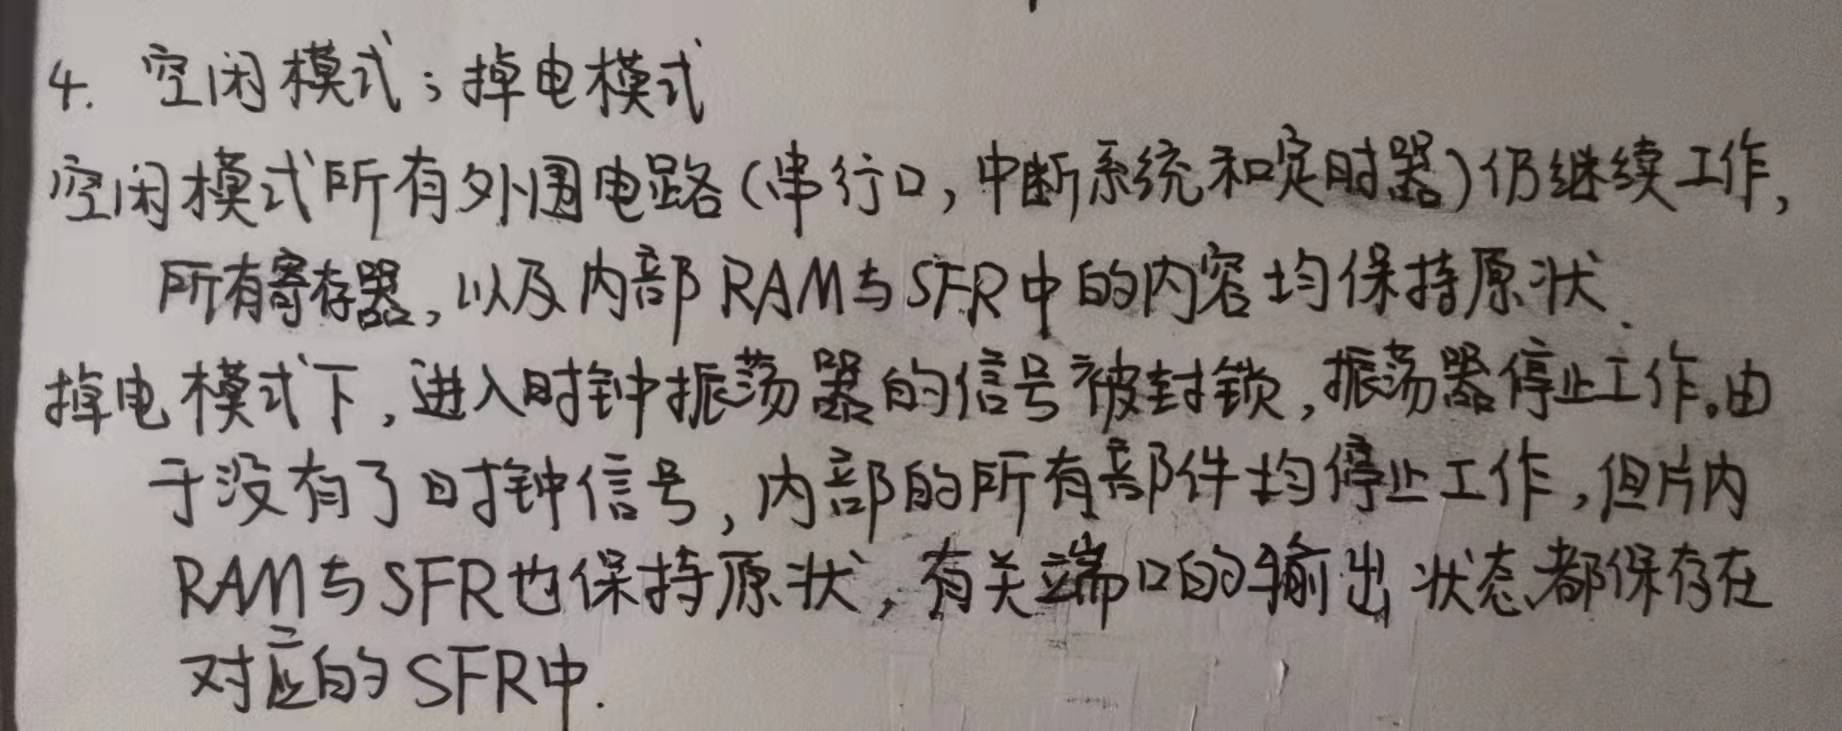 4. 空闲模式；掉电模式
空闲模式所有外围电路(串行口,中断系统和定时器)仍继续工作,
所有寄存器,以及内部RAM与SFR中的内容均保持原状.
掉电模式下,进入时钟振荡器的信号被封锁,振荡器停止工作。由
于没有了时钟信号,内部的所有部件均停止工作,但片内
RAM与SFR也保持原状,有关端口的输出状态都保存在
对应的SFR中.